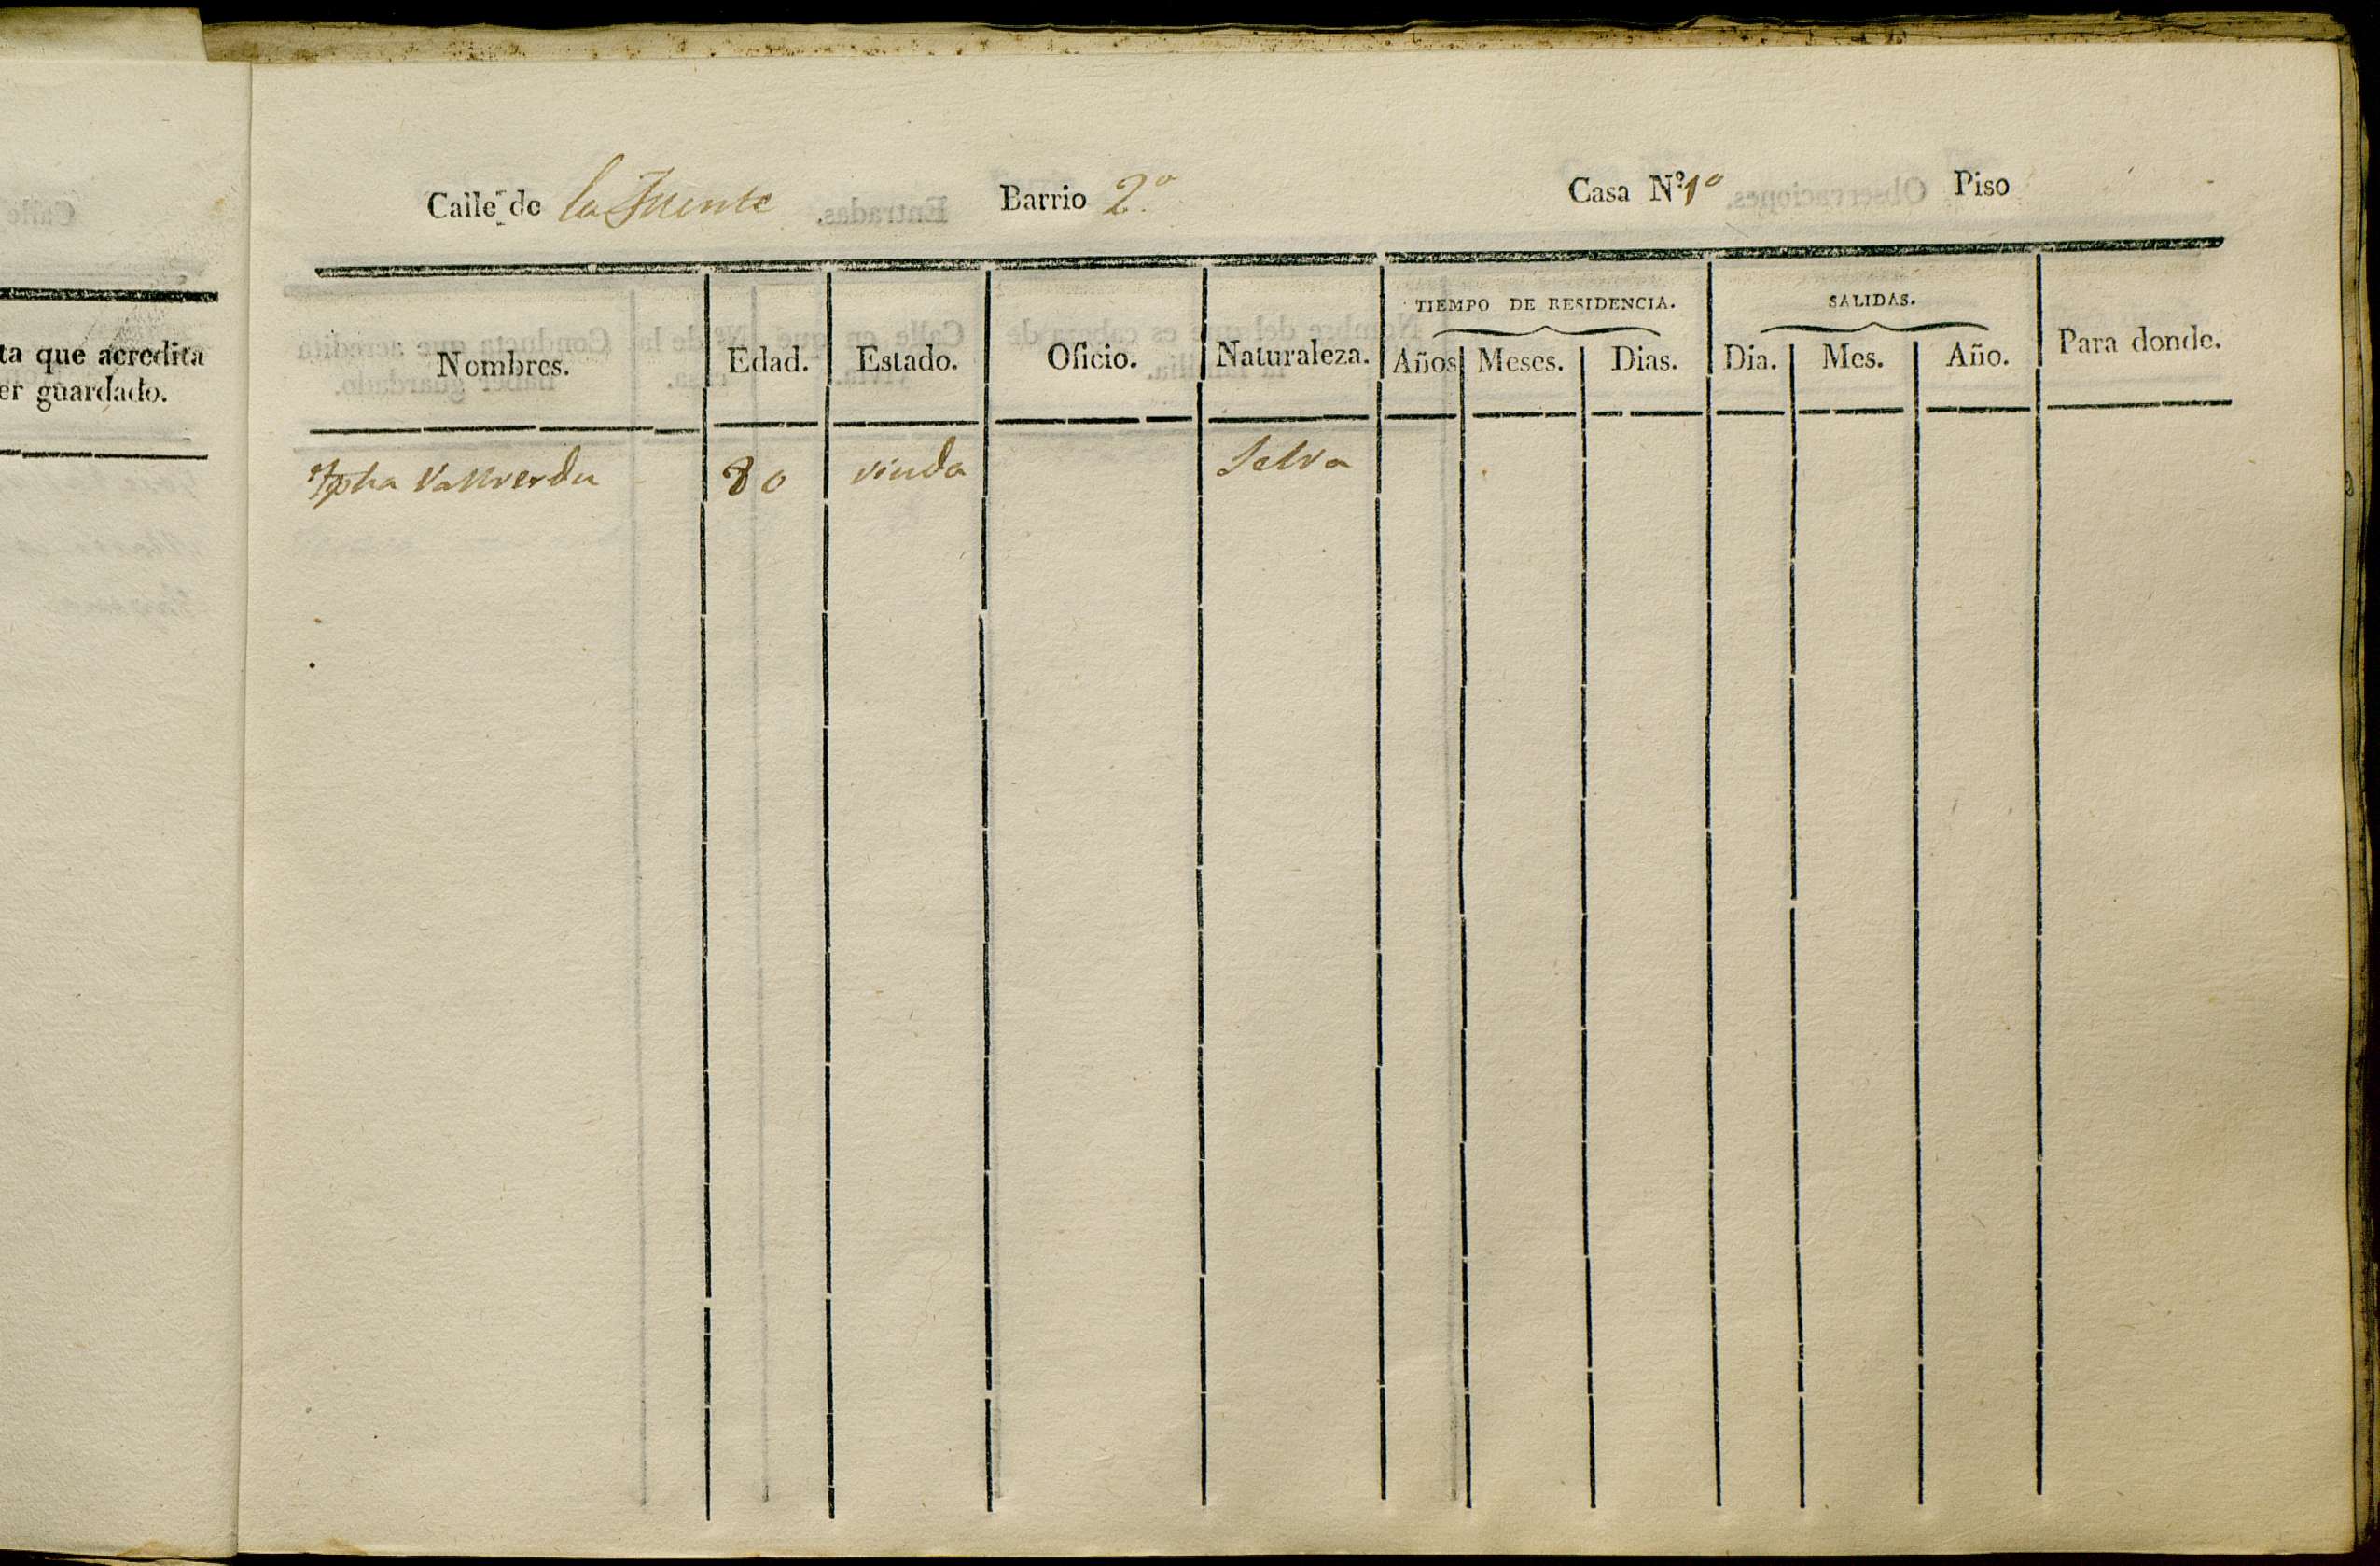 Calle de la Fuente Barrio 2.º Casa Nº 1º Piso
TIEMPO DE RESIDENCIA. SALIDAS.
Nombres. Edad. Estado. Oficio. Naturaleza. Años Meses. Dias. Dia. Mes. Año. Para donde.
Vallverdu 80 viuda Selva
ta que acredita
er guardado.